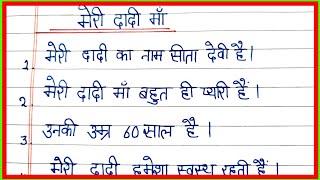 मेरी दादी माँ
1. मेरी दादी का नाम सीता देवी है।
2. मेरी दादी माँ बहुत ही प्यारी हैं।
3. उनकी उम्र 60 साल है ।
मेरी दादी हमेशा स्वस्थ रहती हैं ।